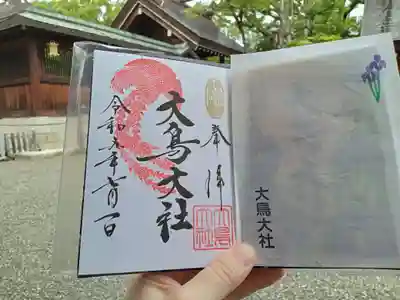 奉拝
大鳥大社
令和五年六月一日
大鳥大社
大鳥大社